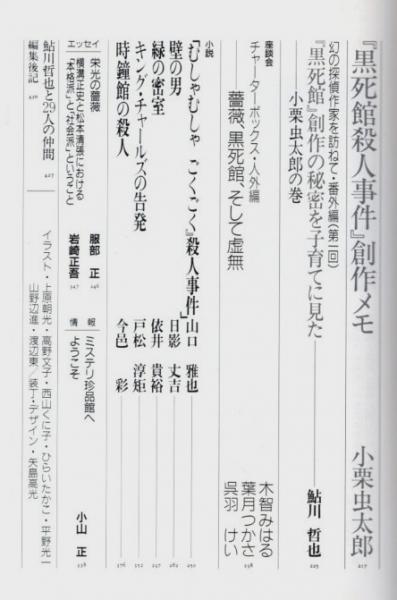 『黒死館殺人事件』創作メモ 小栗虫太郎 217
幻の探偵作家を訪ねて・番外編(第一回)
『黒死館』創作の秘密を子育てに見た 鮎川 哲也
小栗虫太郎の巻
座談会
チャーターボックス・人外編
薔薇、黒死館、そして虚無
木智みはる
葉月つかさ
呉羽 けい
小説
『むしゃむしゃ ごくごく』殺人事件 山口 雅也
壁の男 日影 丈吉
緑の密室 依井 貴裕
キング・チャールズの告発 戸松 淳矩
時鐘館の殺人 今邑 彩
エッセイ
栄光の薔薇 服部 正
横溝正史と松本清張における
「本格派」と「社会派」ということ 岩崎正吾
情報
ミステリ珍品館へ
ようこそ 小山 正
鮎川哲也と29人の仲間
編集後記
イラスト・上原朝光・高野文子・西山くに子・ひらいたかこ・平野光一
山野辺進・渡辺東/装丁・デザイン・矢島高光